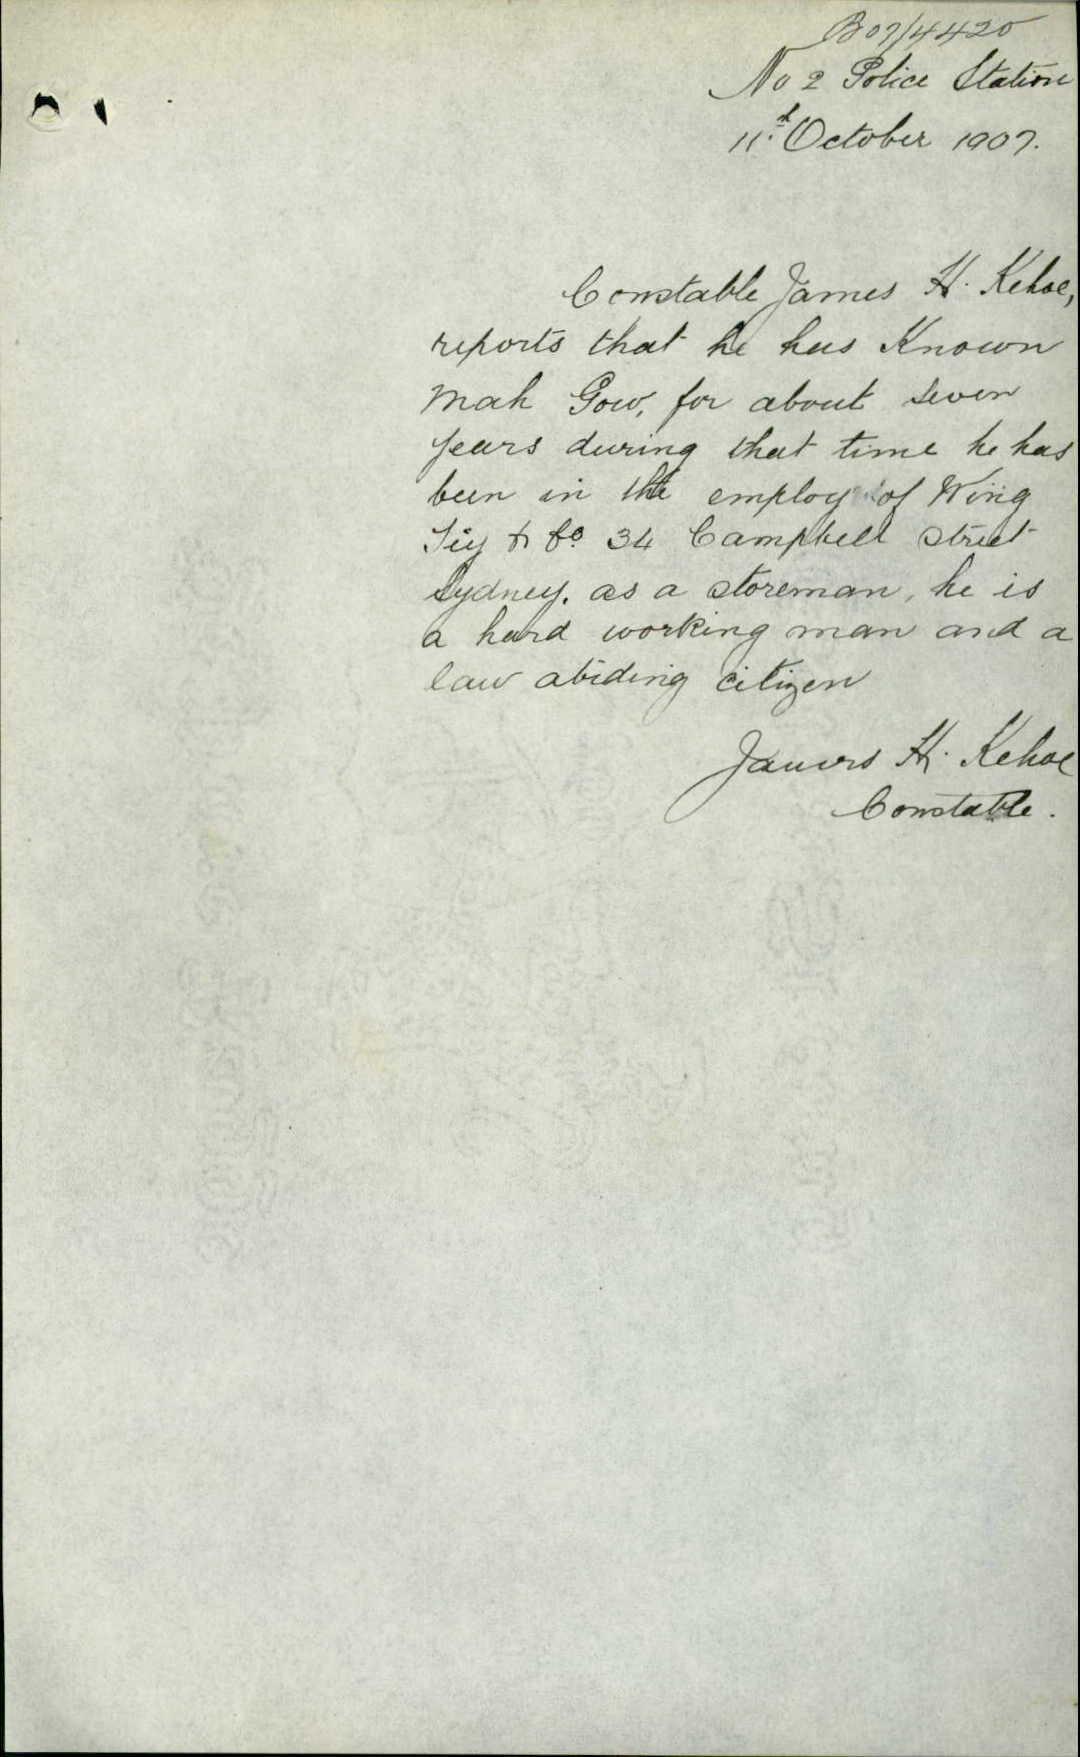 B07/4420
No 2 Police Station
11th October 1907.
Constable James H. Kehoe,
reports that he has Known
Mah Gow, for about seven
years during that time he has
been in the employ of Wing
Tiy & Co. 34 Campbell Street
Sydney. as a storeman, he is
a hard working man and a
law abiding citizen
James H. Kehoe
Constable.